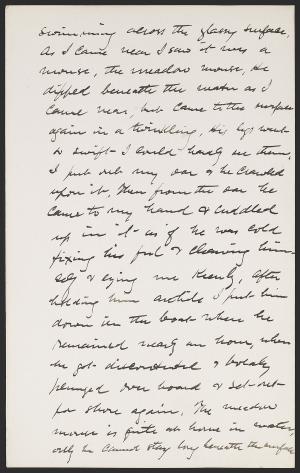 swimming across the glassy surface,
As I came near I saw it was a
mouse, the meadow mouse, He
dipped beneath the water as I
came near, but came to the surface
again in a twinkling, His legs went
so swift I could hardly see them,
I put out my oar & he clambered
upon it, Then from the oar he
came to my hand & cuddled
up in it as if he was cold
fixing his fur & cleaning him-
self & eying me keenly, After
holding him awhile I put him
down in the boat where he
remained nearly an hour, when
he got discontented & boldly
plunged over board & set out
for shore again, The meadow
mouse is quite at home in water,
only he cannot stay long beneath the surface